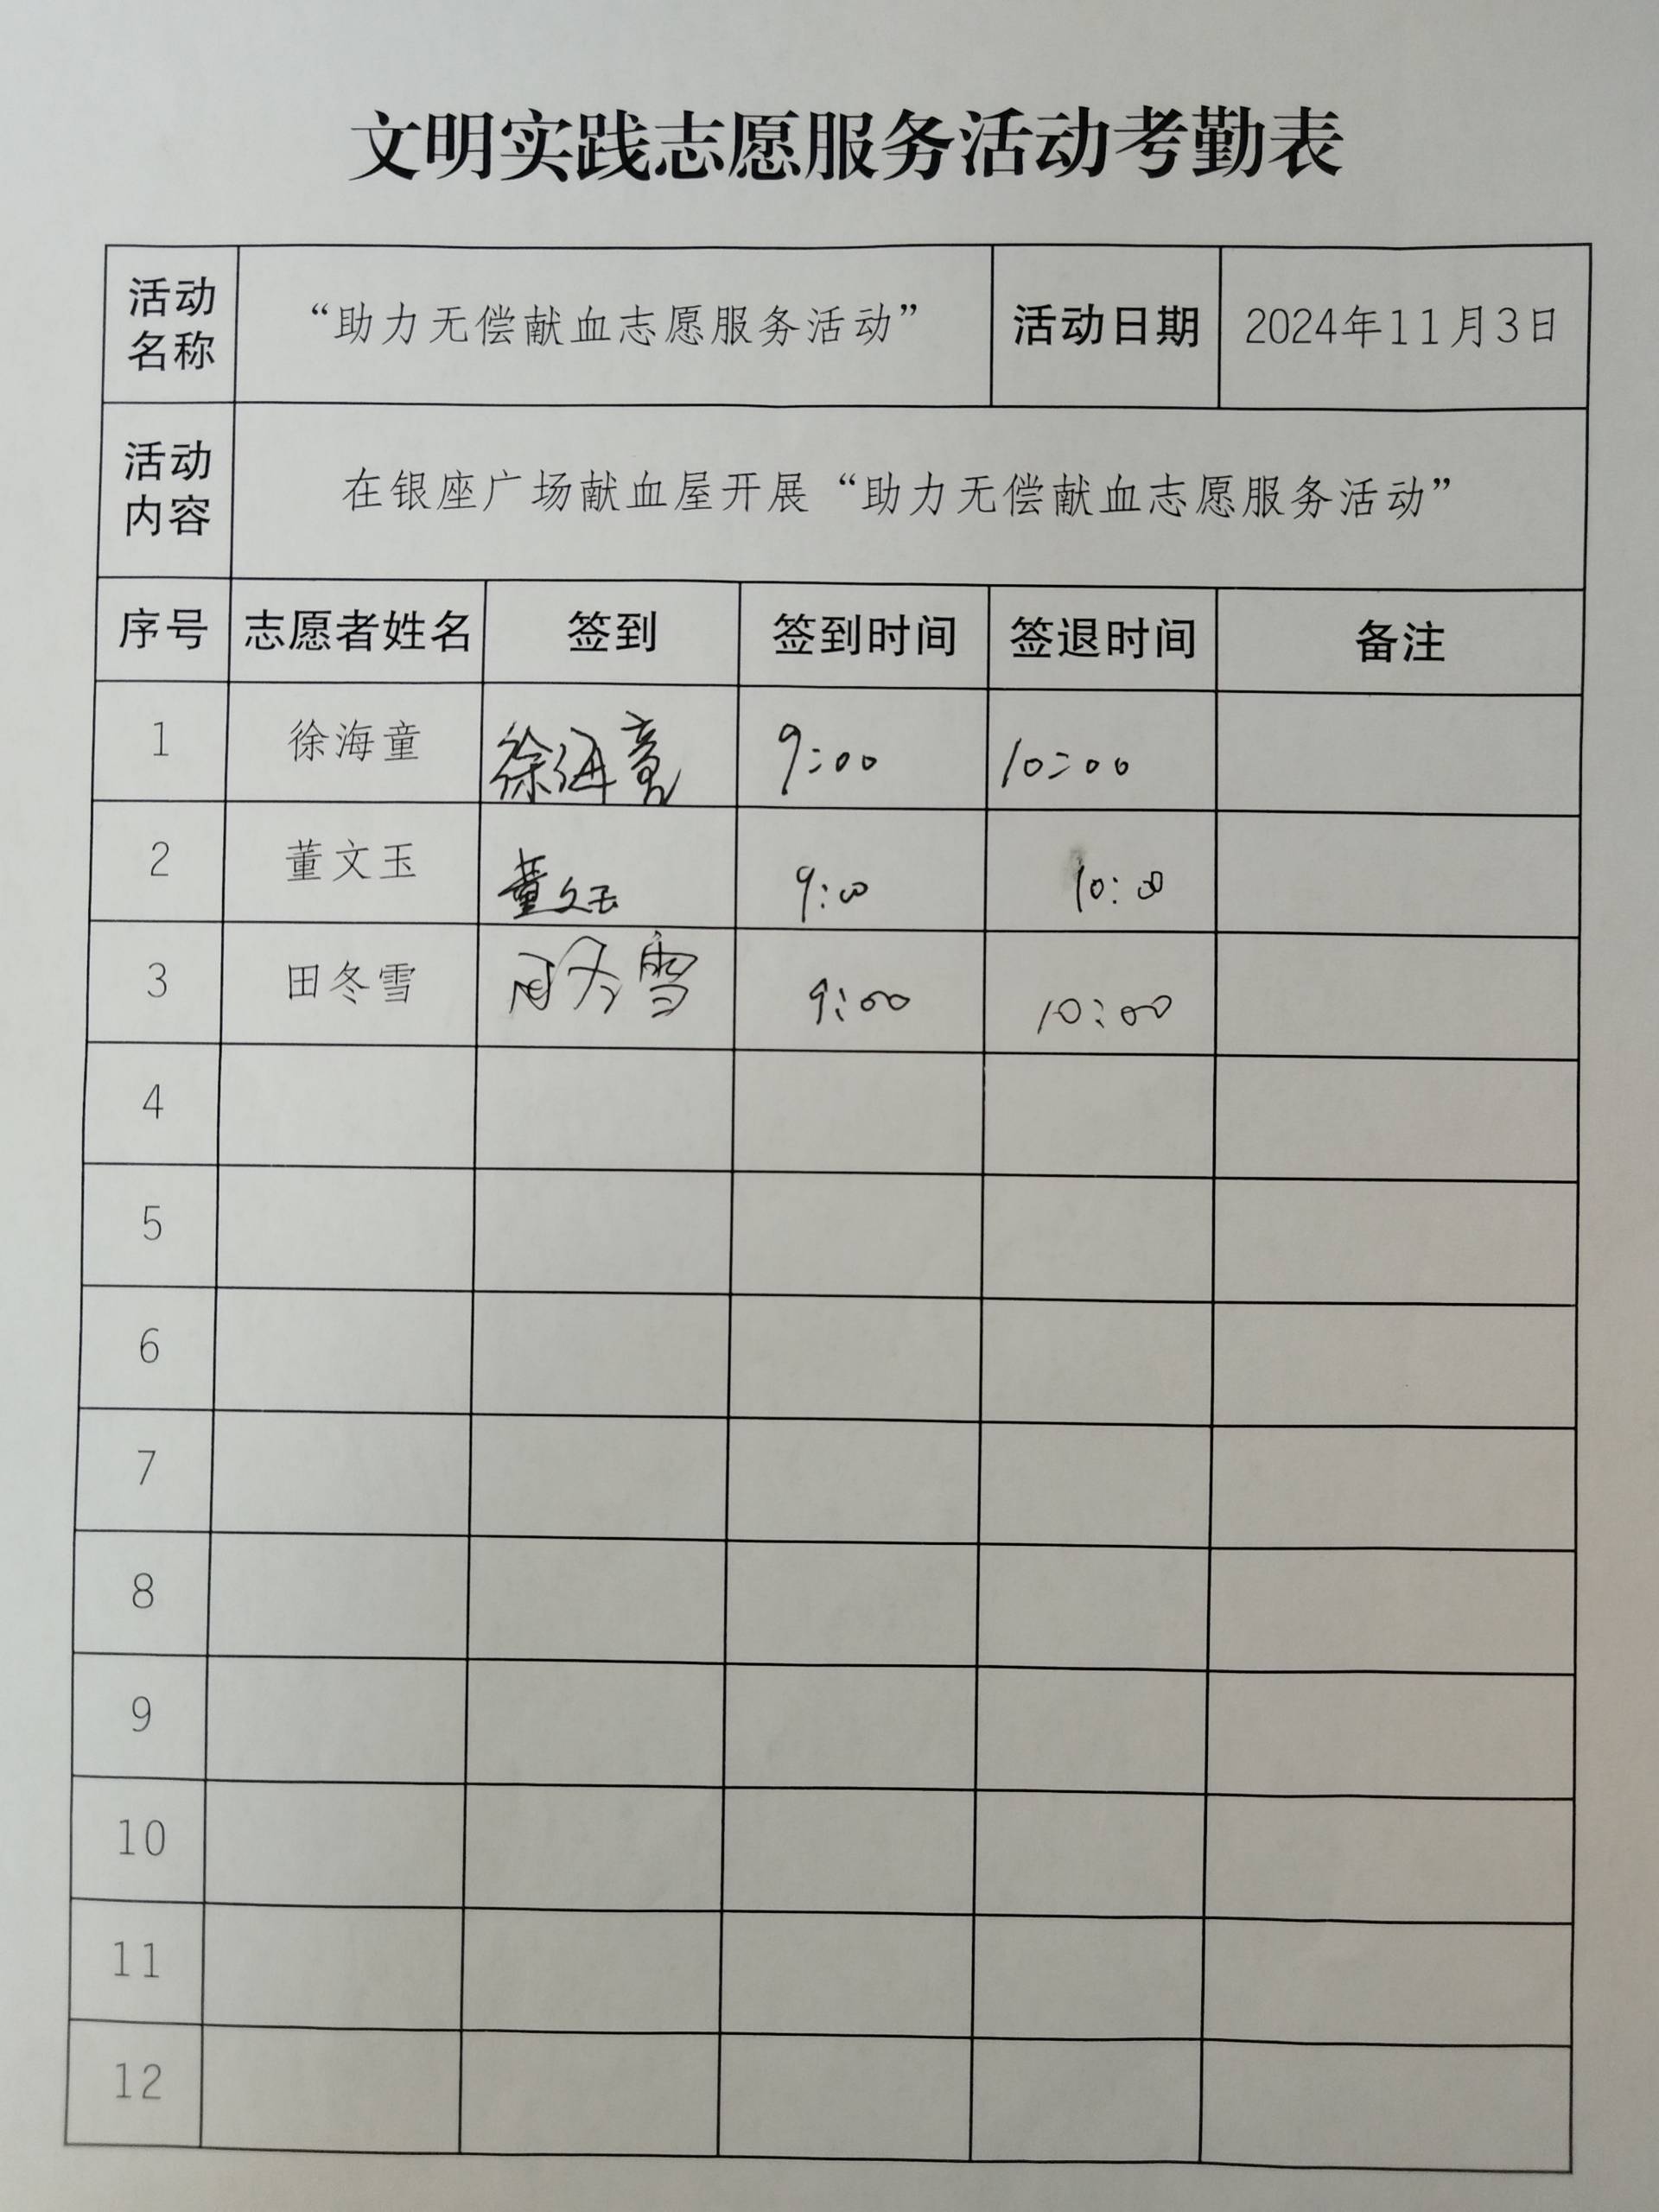 文明实践志愿服务活动考勤表
活动名称 “助力无偿献血志愿服务活动” 活动日期 2024年11月3日
活动内容 在银座广场献血屋开展“助力无偿献血志愿服务活动”
序号 志愿者姓名 签到 签到时间 签退时间 备注
1 徐海童 徐海童 9:00 10:00
2 董文玉 董文玉 9:00 10:00
3 田冬雪 田冬雪 9:00 10:00
4
5
6
7
8
9
10
11
12